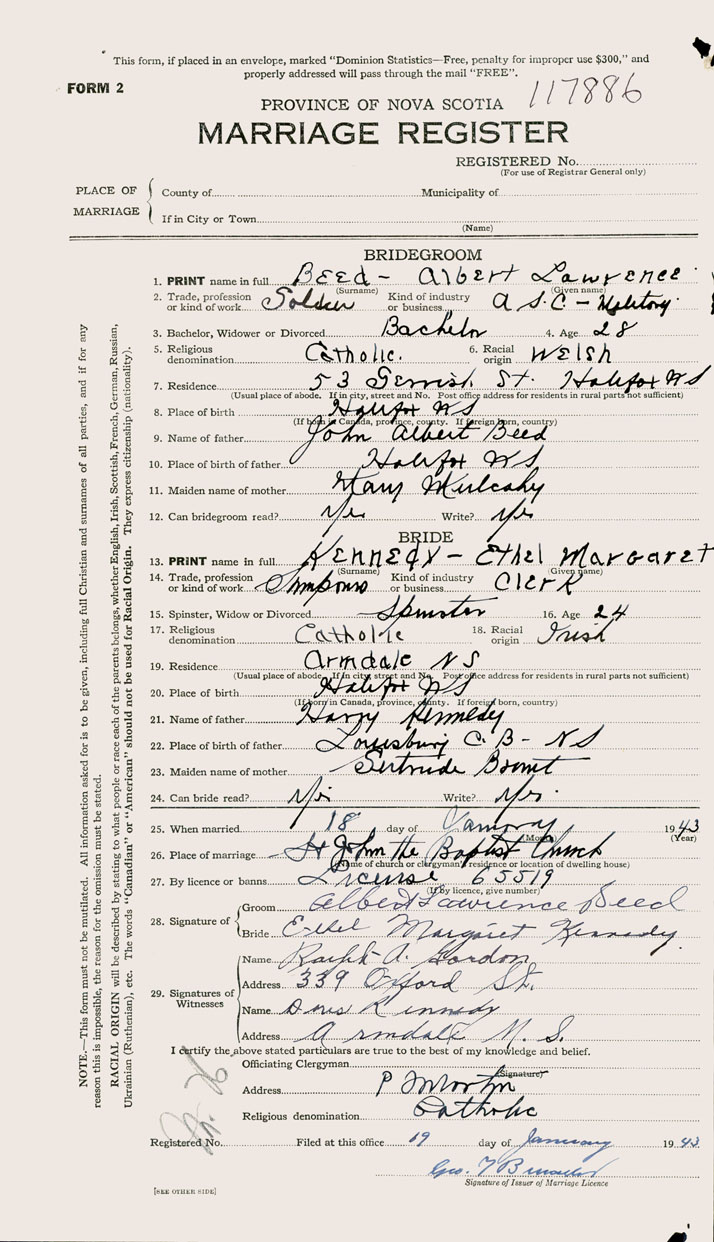 This form, if placed in an envelope, marked "Dominion Statistics—Free, penalty for improper use $300," and
properly addressed will pass through the mail "FREE".
FORM 2
117886
PROVINCE OF NOVA SCOTIA
MARRIAGE REGISTER
REGISTERED No.
(For use of Registrar General only)
PLACE OF MARRIAGE
County of Municipality of
If in City or Town
(Name)
BRIDEGROOM
1. PRINT name in full Beed - Albert Lawrence
(Surname) (Given name)
2. Trade, profession or kind of work Soldier Kind of industry or business A S.C - Military
3. Bachelor, Widower or Divorced Bachelor 4. Age 28
5. Religious denomination Catholic. 6. Racial origin Welsh
7. Residence 53 Gerrish St. Halifax NS
(Usual place of abode. If in city, street and No. Post office address for residents in rural parts not sufficient)
8. Place of birth Halifax NS
(If born in Canada, province, county. If foreign born, country)
9. Name of father John Albert Beed
10. Place of father Halifax NS
11. Maiden name of mother Mary Mulcahy
12. Can bridegroom read? Yes Write? Yes
BRIDE
13. PRINT name in full Kennedy - Ethel Margaret
(Surname) (Given name)
14. Trade, profession or kind of work Simpsons Kind of industry or business Clerk
15. Spinster, Widow or Divorced Spinster 16. Age 24
17. Religious denomination Catholic 18. Racial origin Irish
19. Residence Armdale NS
(Usual place of abode. If in city, street and No. Post office address for residents in rural parts not sufficient)
20. Place of birth Halifax NS
(If born in Canada, province, county. If foreign born, country)
21. Name of father Harry Kennedy
22. Place of birth of father Louisburg C.B- NS
23. Maiden name of mother Gertrude
24. Can bride read? Yes Write? Yes.
25. When married 18 day of January 1943
(Month) (Year)
26. Place of marriage St John the Baptist Church
(Name of church or clergyman's residence or location of dwelling house)
27. By licence or banns License 65519
(If by licence, give number)
28. Signature of
Groom Albert Lawrence Beed
Bride Ethel Margaret Kennedy.
29. Signatures of Witnesses
Name Ralph A. Gordon
Address 339 Oxford St.
Name Doris Kennedy
Address Armdale N.S.
I certify the above stated particulars are true to the best of my knowledge and belief.
Officiating Clergyman
(Signature)
Address P
Religious denomination Catholic
Registered No. Filed at this office 19 day of January 1943
Geo.
Signature of Issuer of Marriage Licence
[SEE OTHER SIDE]
NOTE.—This form must not be mutilated. All information asked for is to be given, including full Christian and surnames of all parties, and if for any
reason this is impossible, the reason for the omission must be stated.
RACIAL ORIGIN will be described by stating to what people or race each of the parents belongs, whether English, Irish, Scottish, French, German, Russian,
Ukrainian (Ruthenian), etc. The words "Canadian" or "American" should not be used for Racial Origin. They express citizenship (nationality).